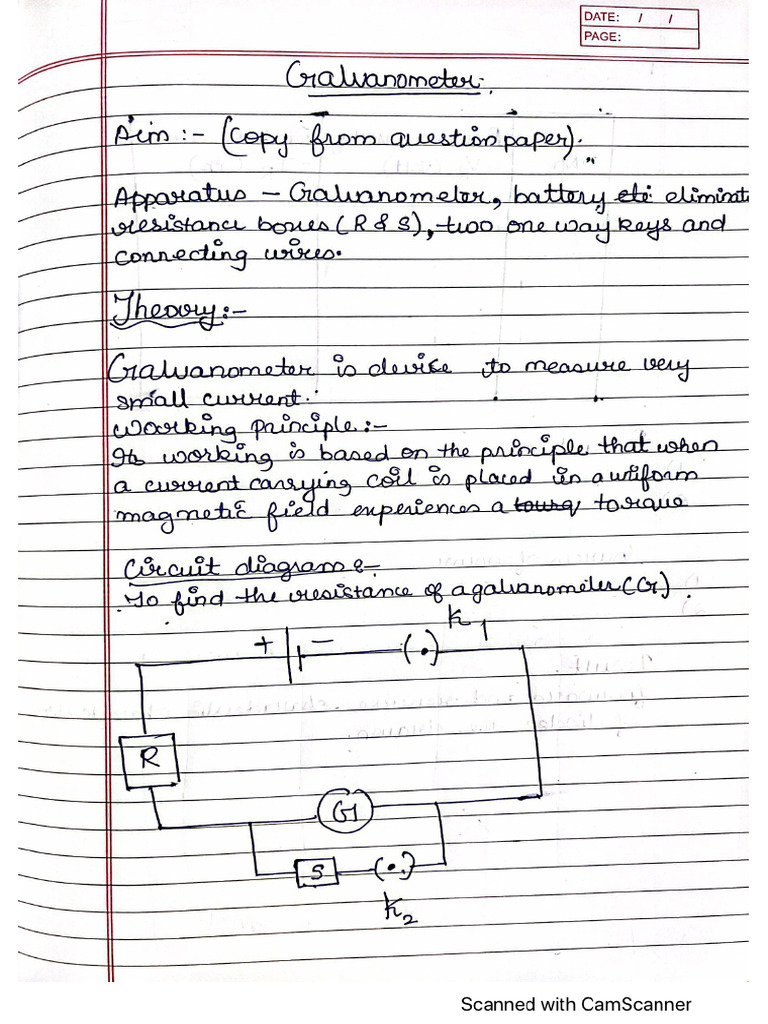 DATE: / /
PAGE:
Galvanometer.
Aim :- (Copy from question paper).
Apparatus - Galvanometer, battery etc eliminate
resistance boxes (R & S), two one way keys and
connecting wires.
Theory :-
Galvanometer is device to measure very
small current.
Working principle :-
Its working is based on the principle that when
a current carrying coil is placed in a uniform
magnetic field experiences a tourq torque
Circuit diagram :-
To find the resistance of a galvanometer (G).
+ - (•) K1
R
G
S (•)
K2
Scanned with CamScanner